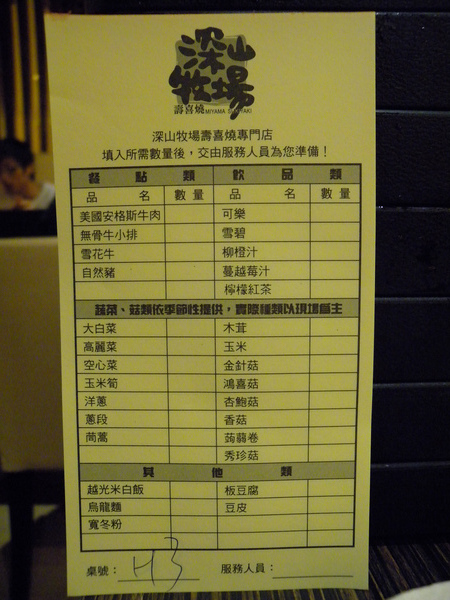 深山牧場
壽喜燒 MIYAMA SUKIYAKI
深山牧場壽喜燒專門店
填入所需數量後，交由服務人員為您準備！
餐點類 飲品類
品名 數量 品名 數量
美國安格斯牛肉 可樂
無骨牛小排 雪碧
雪花牛 柳橙汁
自然豬 蔓越莓汁
檸檬紅茶
蔬菜、菇類依季節性提供，實際種類以現場為主
大白菜 木茸
高麗菜 玉米
空心菜 金針菇
玉米筍 鴻喜菇
洋蔥 杏鮑菇
蔥段 香菇
茼蒿 蒟蒻卷
秀珍菇
其他類
越光米白飯 板豆腐
烏龍麵 豆皮
寬冬粉
桌號： H3 服務人員：